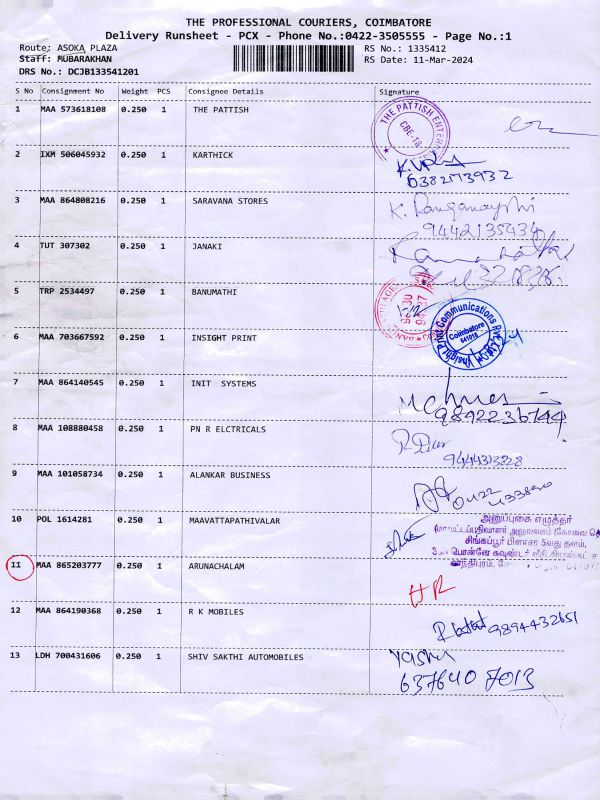 THE PROFESSIONAL COURIERS, COIMBATORE
Delivery Runsheet - PCX - Phone No.:0422-3505555 - Page No.:1
Route: ASOKA PLAZA RS No.: 1335412
Staff: MUBARAKHAN RS Date: 11-Mar-2024
DRS No.: DCJB133541201
S No Consignment No Weight PCS Consignee Details Signature
1 MAA 573618108 0.250 1 THE PATTISH
THE PATTISH
CBE-18
2 IXM 506045932 0.250 1 KARTHICK
3 MAA 864808216 0.250 1 SARAVANA STORES K. Ranganayshi
9442135434
4 TUT 307302 0.250 1 JANAKI
5 TRP 2534497 0.250 1 BANUMATHI
6 MAA 703667592 0.250 1 INSIGHT PRINT
Insight Print Communications
Coimbatore
641018
7 MAA 864140545 0.250 1 INIT SYSTEMS
9892236744
8 MAA 108880458 0.250 1 PN R ELCTRICALS
9444313828
9 MAA 101058734 0.250 1 ALANKAR BUSINESS
10 POL 1614281 0.250 1 MAAVATTAPATHIVALAR
அனுப்புகை எழுத்தர்
மாவட்டப்பதிவாளர் அலுவலகம்
11 MAA 865203777 0.250 1 ARUNACHALAM HR
12 MAA 864190368 0.250 1 R K MOBILES
9894432651
13 LDH 700431606 0.250 1 SHIV SAKTHI AUTOMOBILES
637640 7013